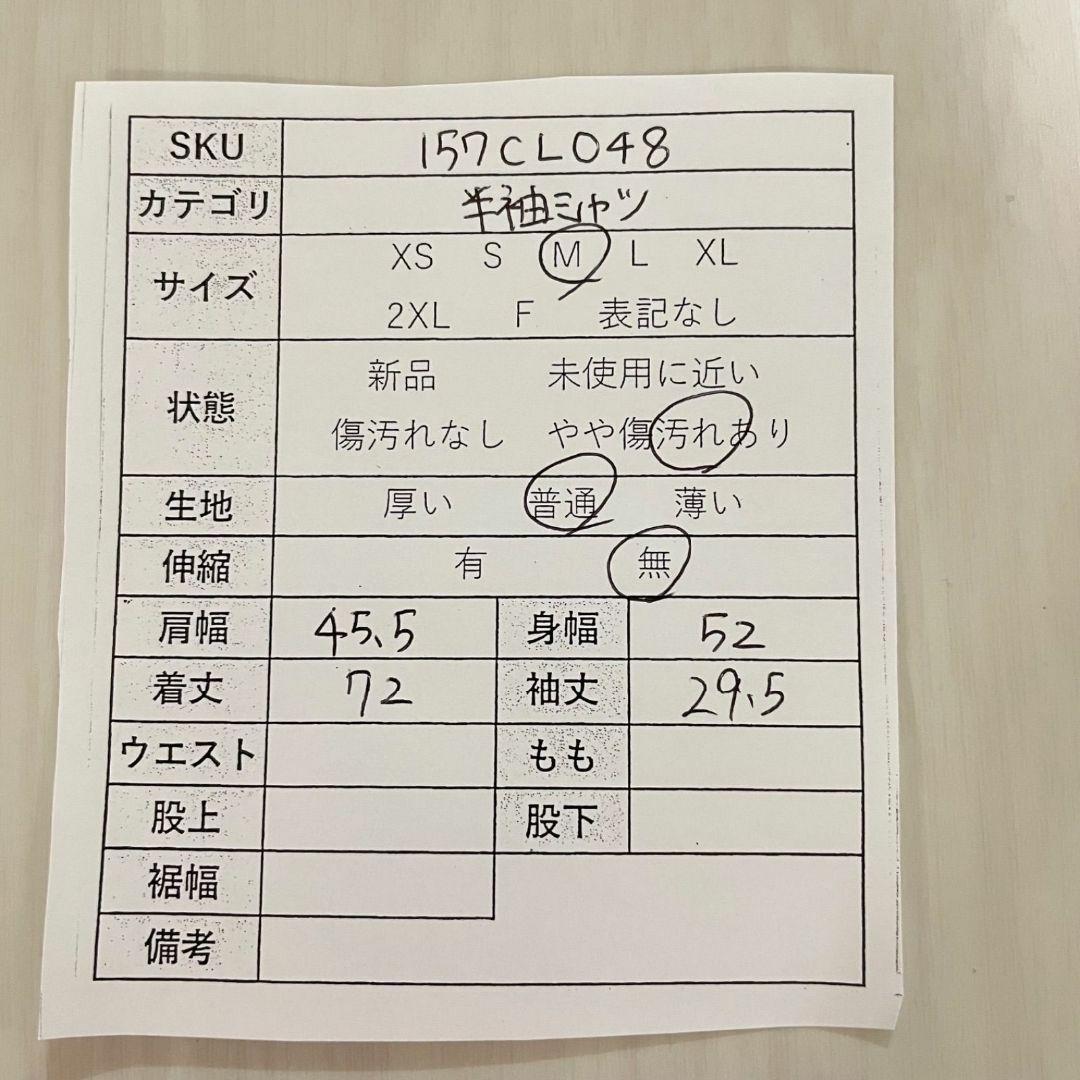 SKU 157CL048
カテゴリ 半袖シャツ
サイズ XS S M L XL
2XL F 表記なし
状態 新品 未使用に近い
傷汚れなし やや傷汚れあり
生地 厚い 普通 薄い
伸縮 有 無
肩幅 45.5 身幅 52
着丈 72 袖丈 29.5
ウエスト もも
股上 股下
裾幅
備考